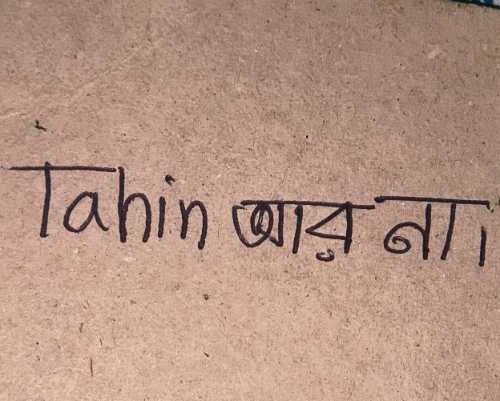 Tahin আর না।